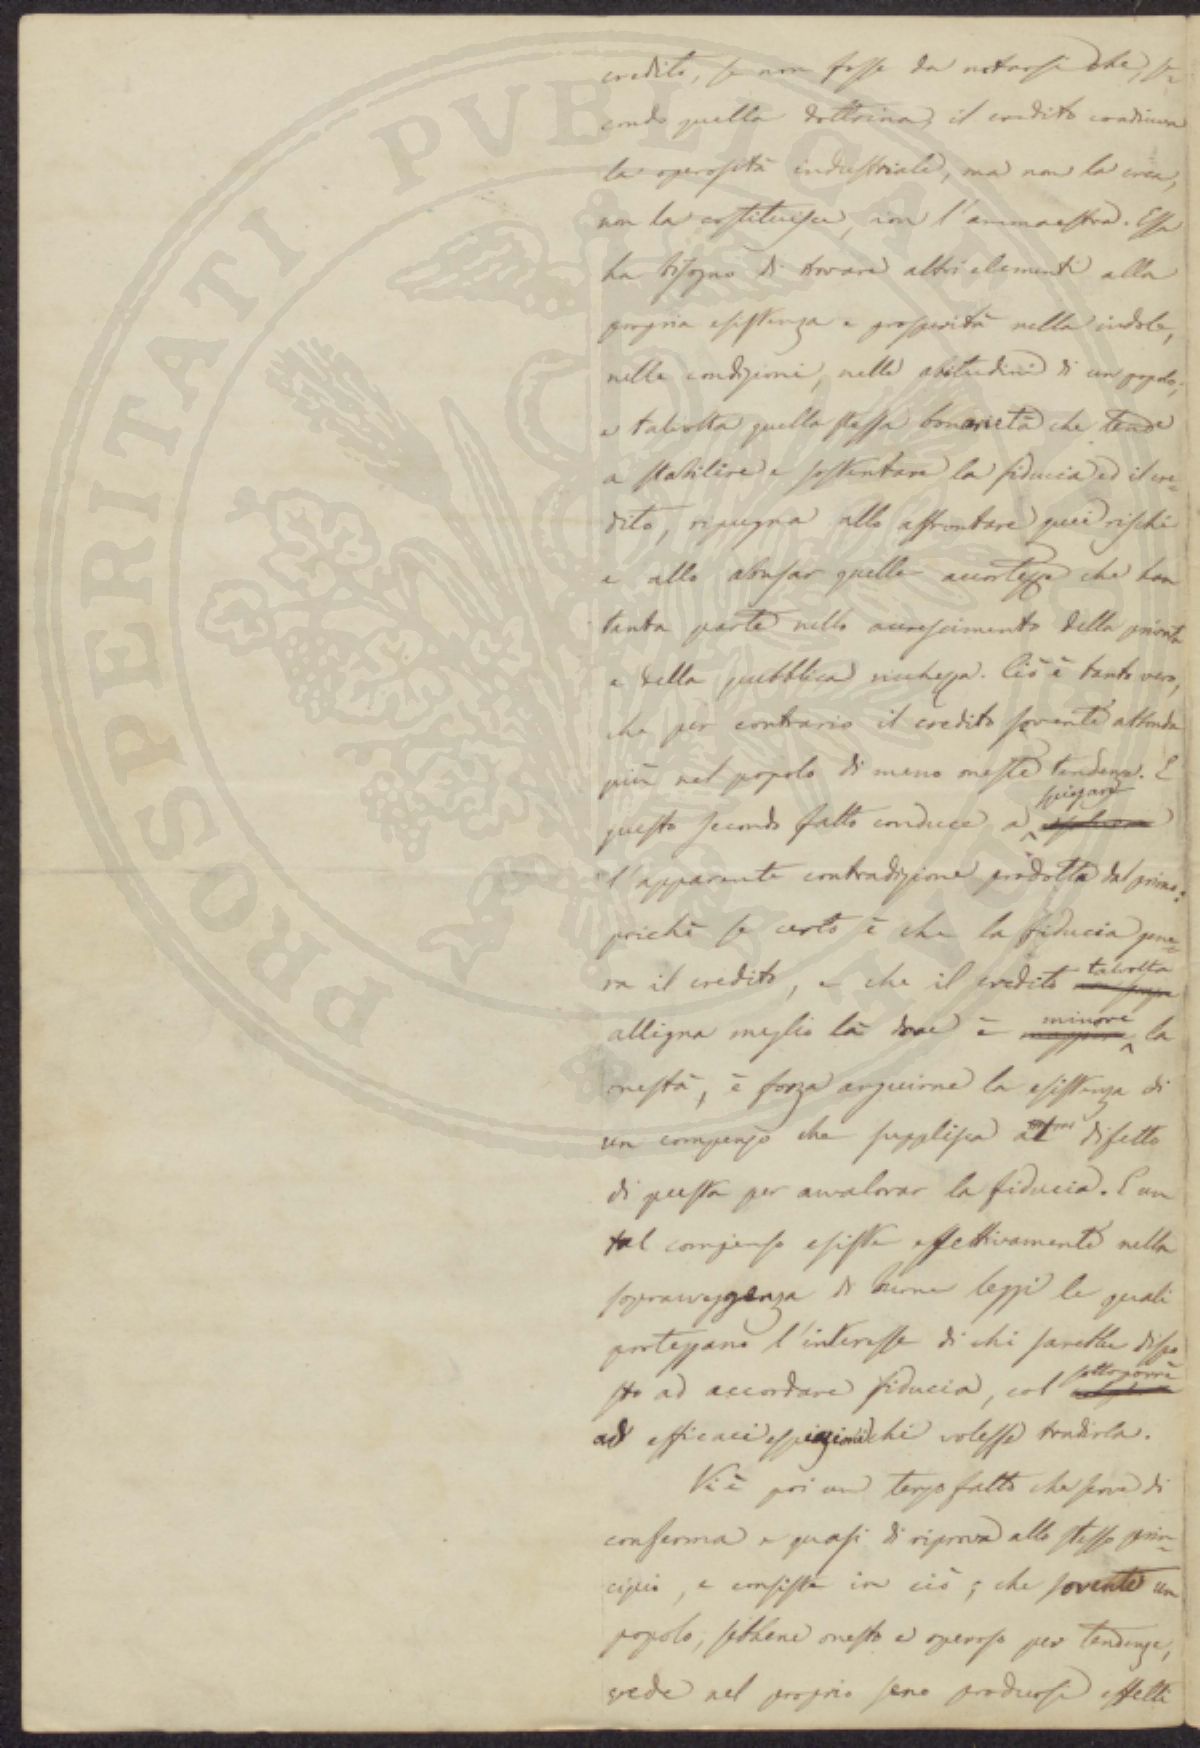 credito, se non fosse da notarsi che, se-
condo quella dottrina, il credito coadiuva
la operosità industriale, ma non la crea,
non la costituisce, non l'ammaestra. Essa
ha bisogno di trovare altri elementi alla
propria esistenza e prosperità nella indole,
nelle condizioni, nelle abitudini di un popolo;
e talvolta quella stessa bonarietà che tende
a stabilire e sostentare la fiducia ed il cre-
dito, ripugna allo affrontare quei rischi
e allo abusar quelle accortezze che han
tanta parte nello accrescimento della privata
e della pubblica ricchezza. Ciò è tanto vero,
che per contrario il credito sovente abbonda
più nel popolo di meno oneste tendenze. E
questo secondo fatto conduce a spiegare
l'apparente contradizione prodotta dal primo:
poichè se certo è che la fiducia gene-
ra il credito, e che il credito talvolta
alligna meglio là dove è minore la
onestà, è forza arguirne la esistenza di
un compenso che supplisca al difetto
di questa per avvalorar la fiducia. E un
tal compenso esiste effettivamente nella
sopravveggenza di buone leggi le quali
proteggano l'interesse di chi sarebbe dispo
sto ad accordare fiducia, col sottoporre
ad efficaci espiazioni chi volesse tradirla.
Vi è poi un terzo fatto che serve di
conferma e quasi di riprova allo stesso prin-
cipio, e consiste in ciò; che sovente un
popolo, sebbene onesto e operoso per tendenze,
vede nel proprio seno prodursi effetti
PROSPERITATI PVBLICAE